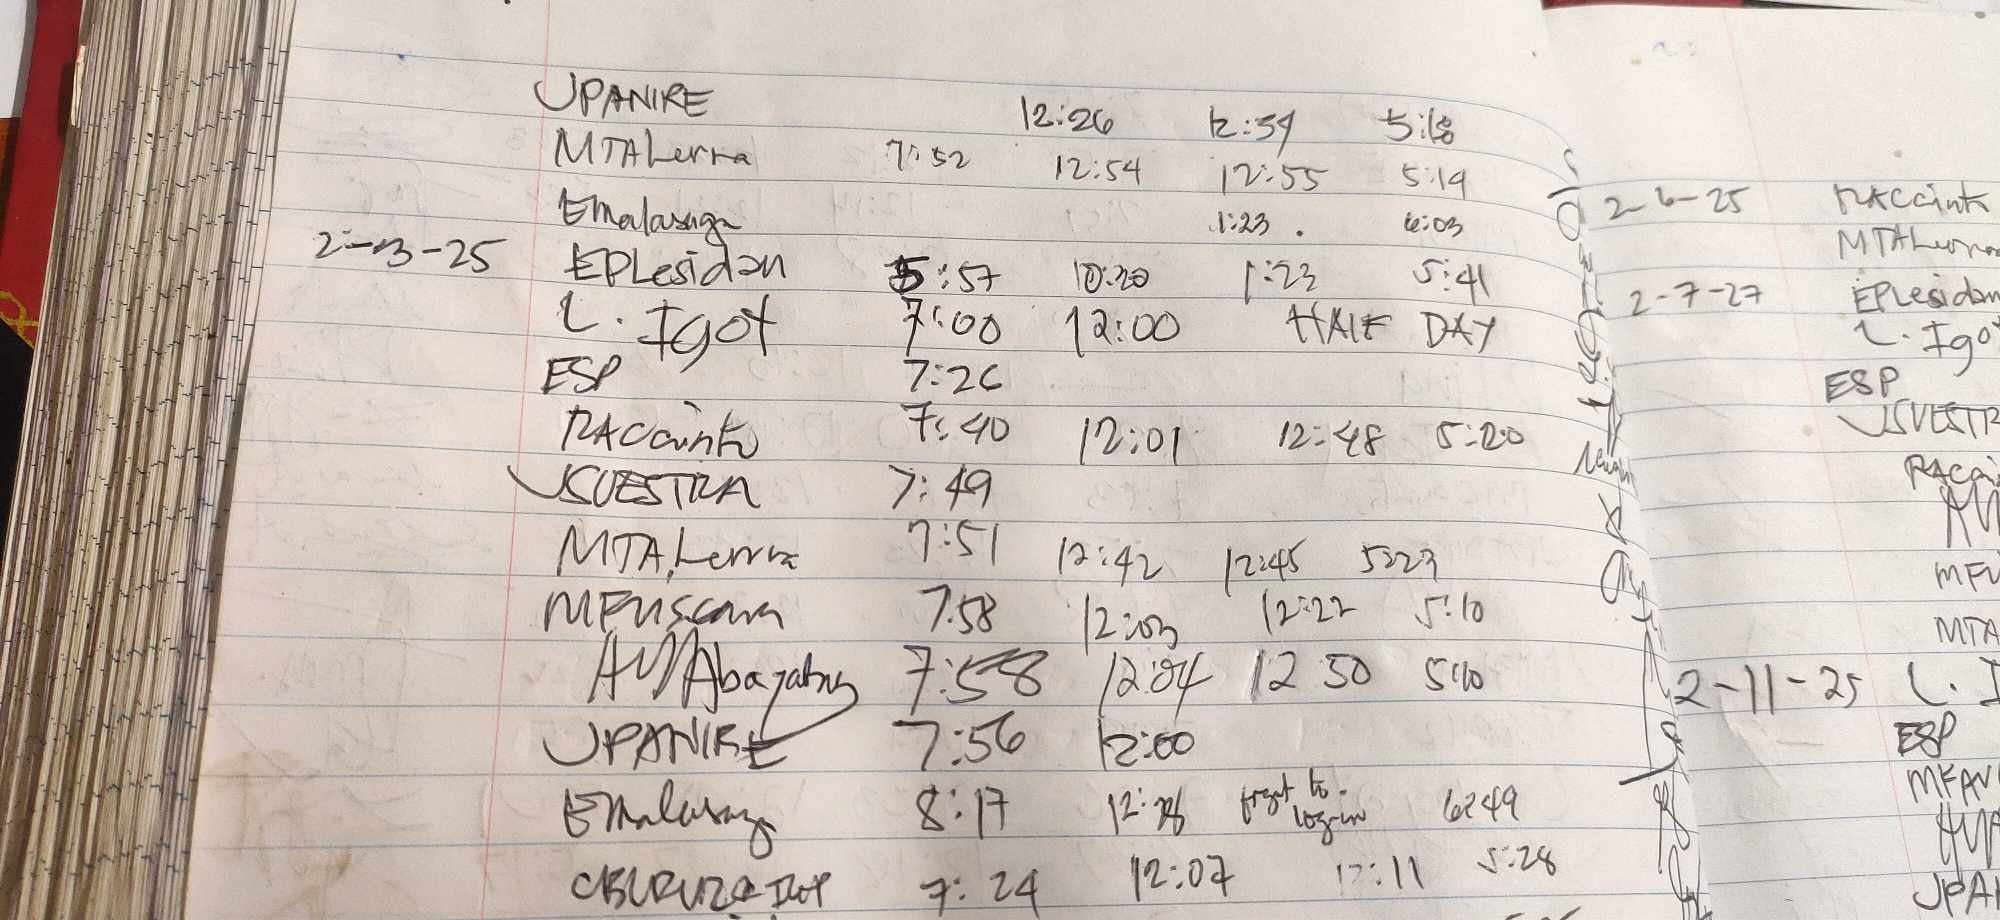 JPANIRE 12:26 12:54 5:18
MTALerra 7:52 12:54 12:55 5:19
EMalasaga 1:23 6:03
2-3-25 EPLesidan 5:57 10:20 1:23 5:41
L. Igot 7:00 12:00 HALF DAY
ESP 7:26
RACainto 7:40 12:01 12:48 5:20
JSVESTRA 7:49
MTALerra 7:51 12:42 12:45 5:23
7:58 12:03 12:22 5:10
7:58 12:04 12 50 5:10
JPANIRE 7:56 12:00
EMalasaga 8:17 forgot to log-in 6:49
7:24 12:07 12:11 5:28
2-6-25 RACainto
MTALerra
2-7-27 EPLesidan
L. Igot
ESP
JSVESTR
RACai
MTA
2-11-25 L. I
ESP
JPA